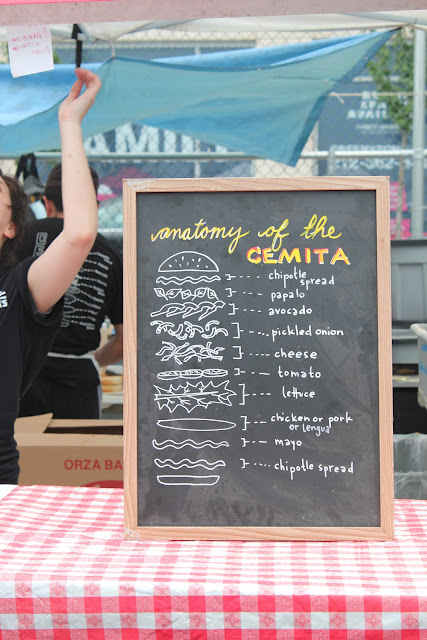 anatomy of the
CEMITA
chipotle
spread
papalo
avocado
pickled onion
cheese
tomato
lettuce
chicken or pork
or lengua
mayo
chipotle spread
ORZA BA